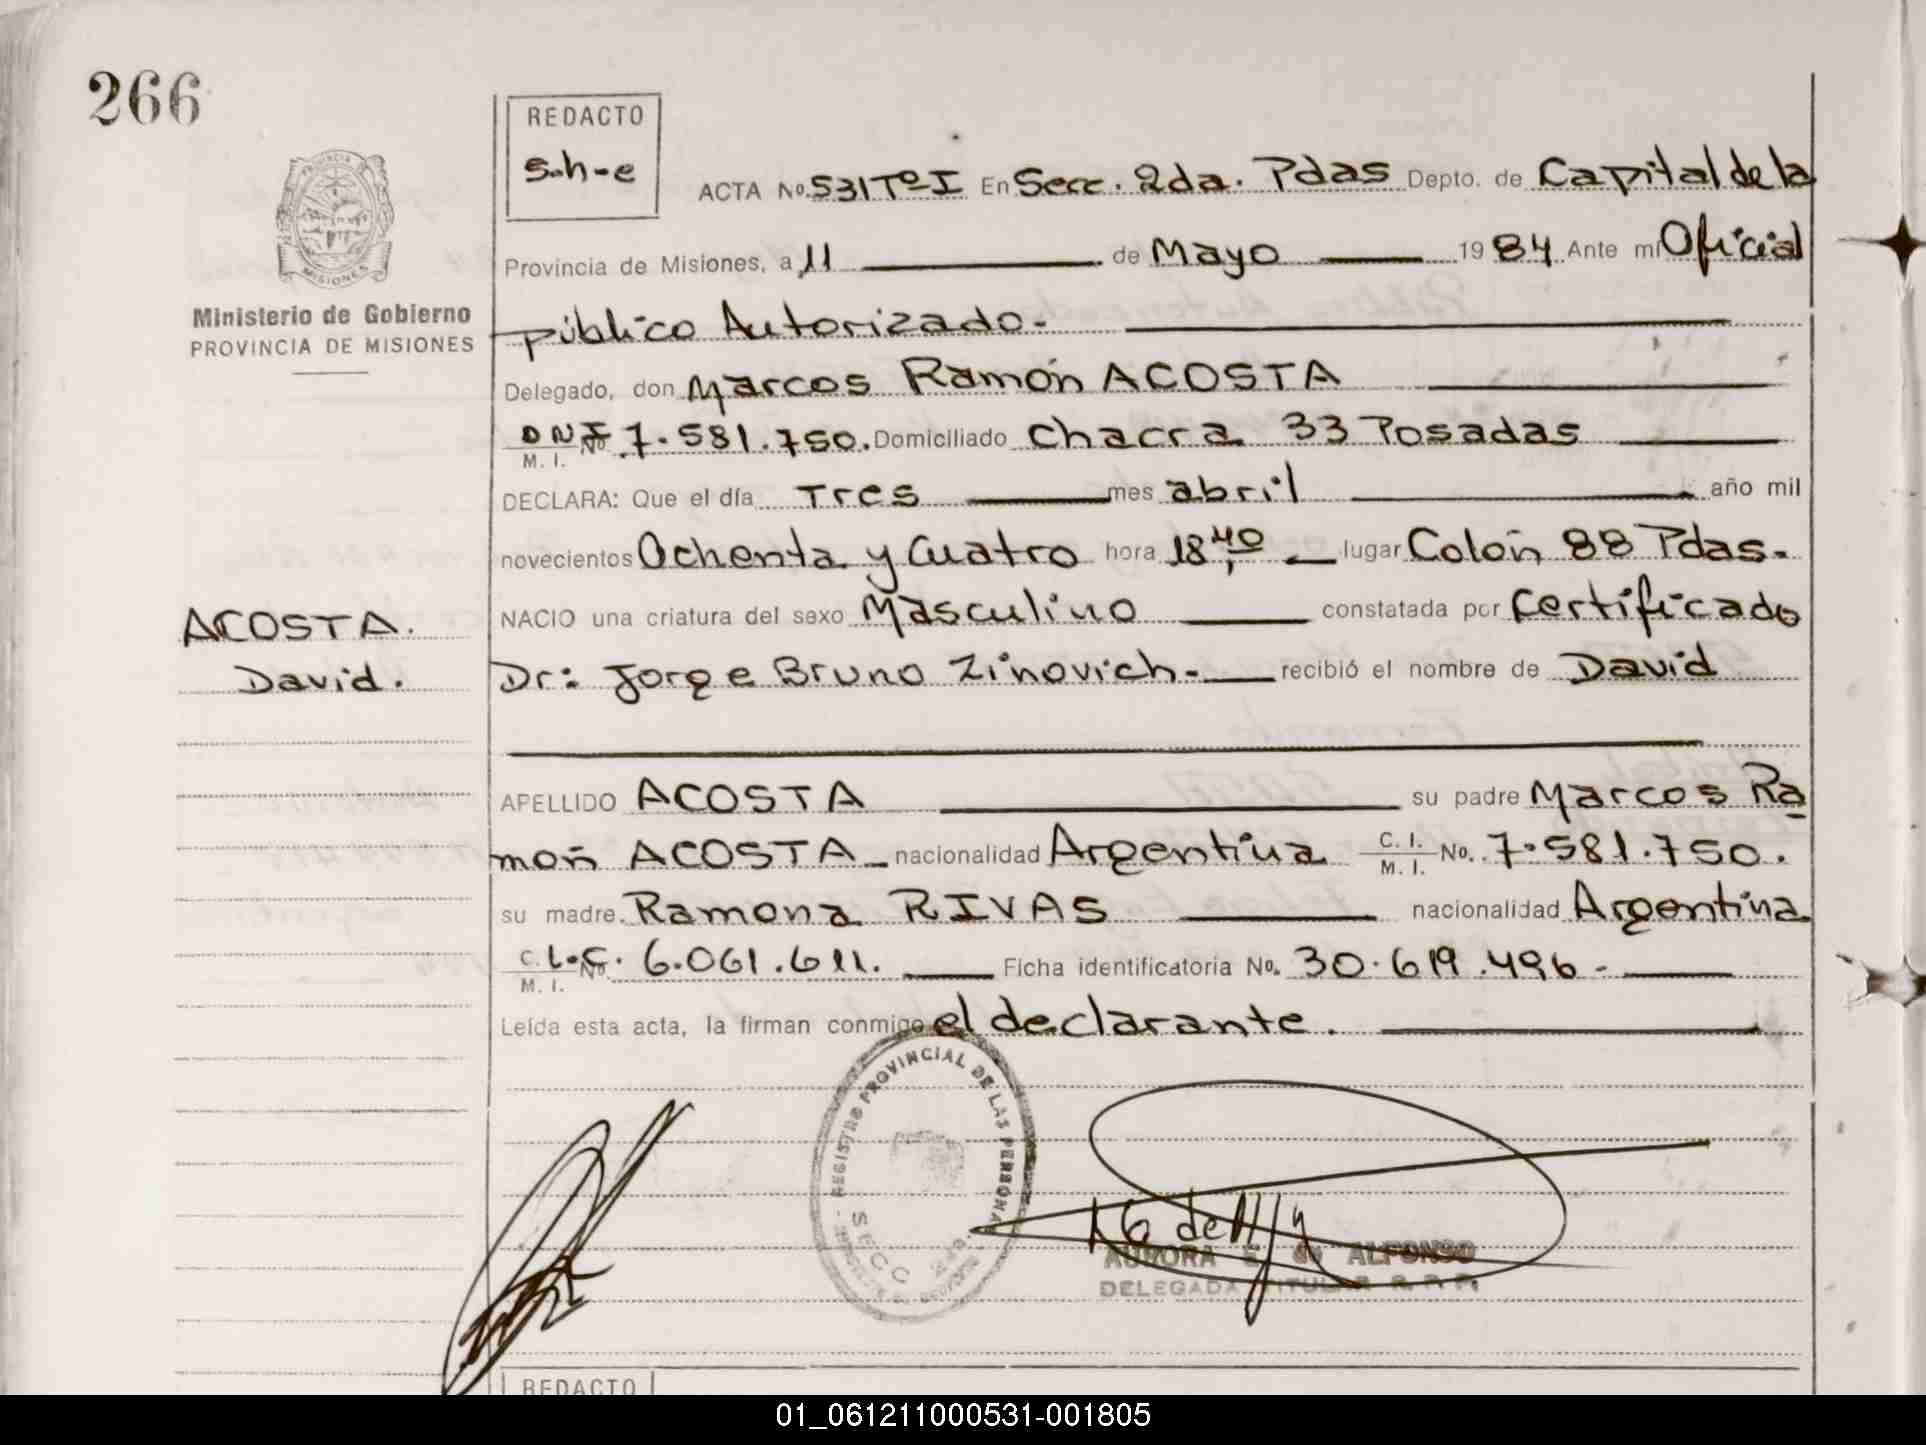 266
REDACTO
S.h-e
ACTA No. 531 Tº-I En Secc. 2da. Pdas Depto. de Capital de la
Provincia de Misiones, a 11 de Mayo 1984 Ante mi Oficial
Ministerio de Gobierno
PROVINCIA DE MISIONES
público Autorizado.-
Delegado, don Marcos Ramón ACOSTA
DNI M. I. No. 7.581.750. Domiciliado Chacra 33 Posadas
DECLARA: Que el día Tres mes abril año mil
novecientos Ochenta y Cuatro hora 18,40 lugar Colón 88 Pdas-
NACIO una criatura del sexo Masculino constatada por Certificado
ACOSTA.
David.
Dr: Jorge Bruno Zinovich.- recibió el nombre de David
APELLIDO ACOSTA su padre Marcos Ra
món ACOSTA nacionalidad Argentina C. I. M. I. No. 7.581.750.
su madre Ramona RIVAS nacionalidad Argentina
C. L.C. M. I. No. 6.061.611. Ficha identificatoria No. 30.619.496-
Leída esta acta, la firman conmigo el declarante.
REGISTRO PROVINCIAL DE LAS PERSONAS
SECC 2da.
AURORA E. ALFONSO
DELEGADA TITULAR R. P. P.
REDACTO
01_061211000531-001805